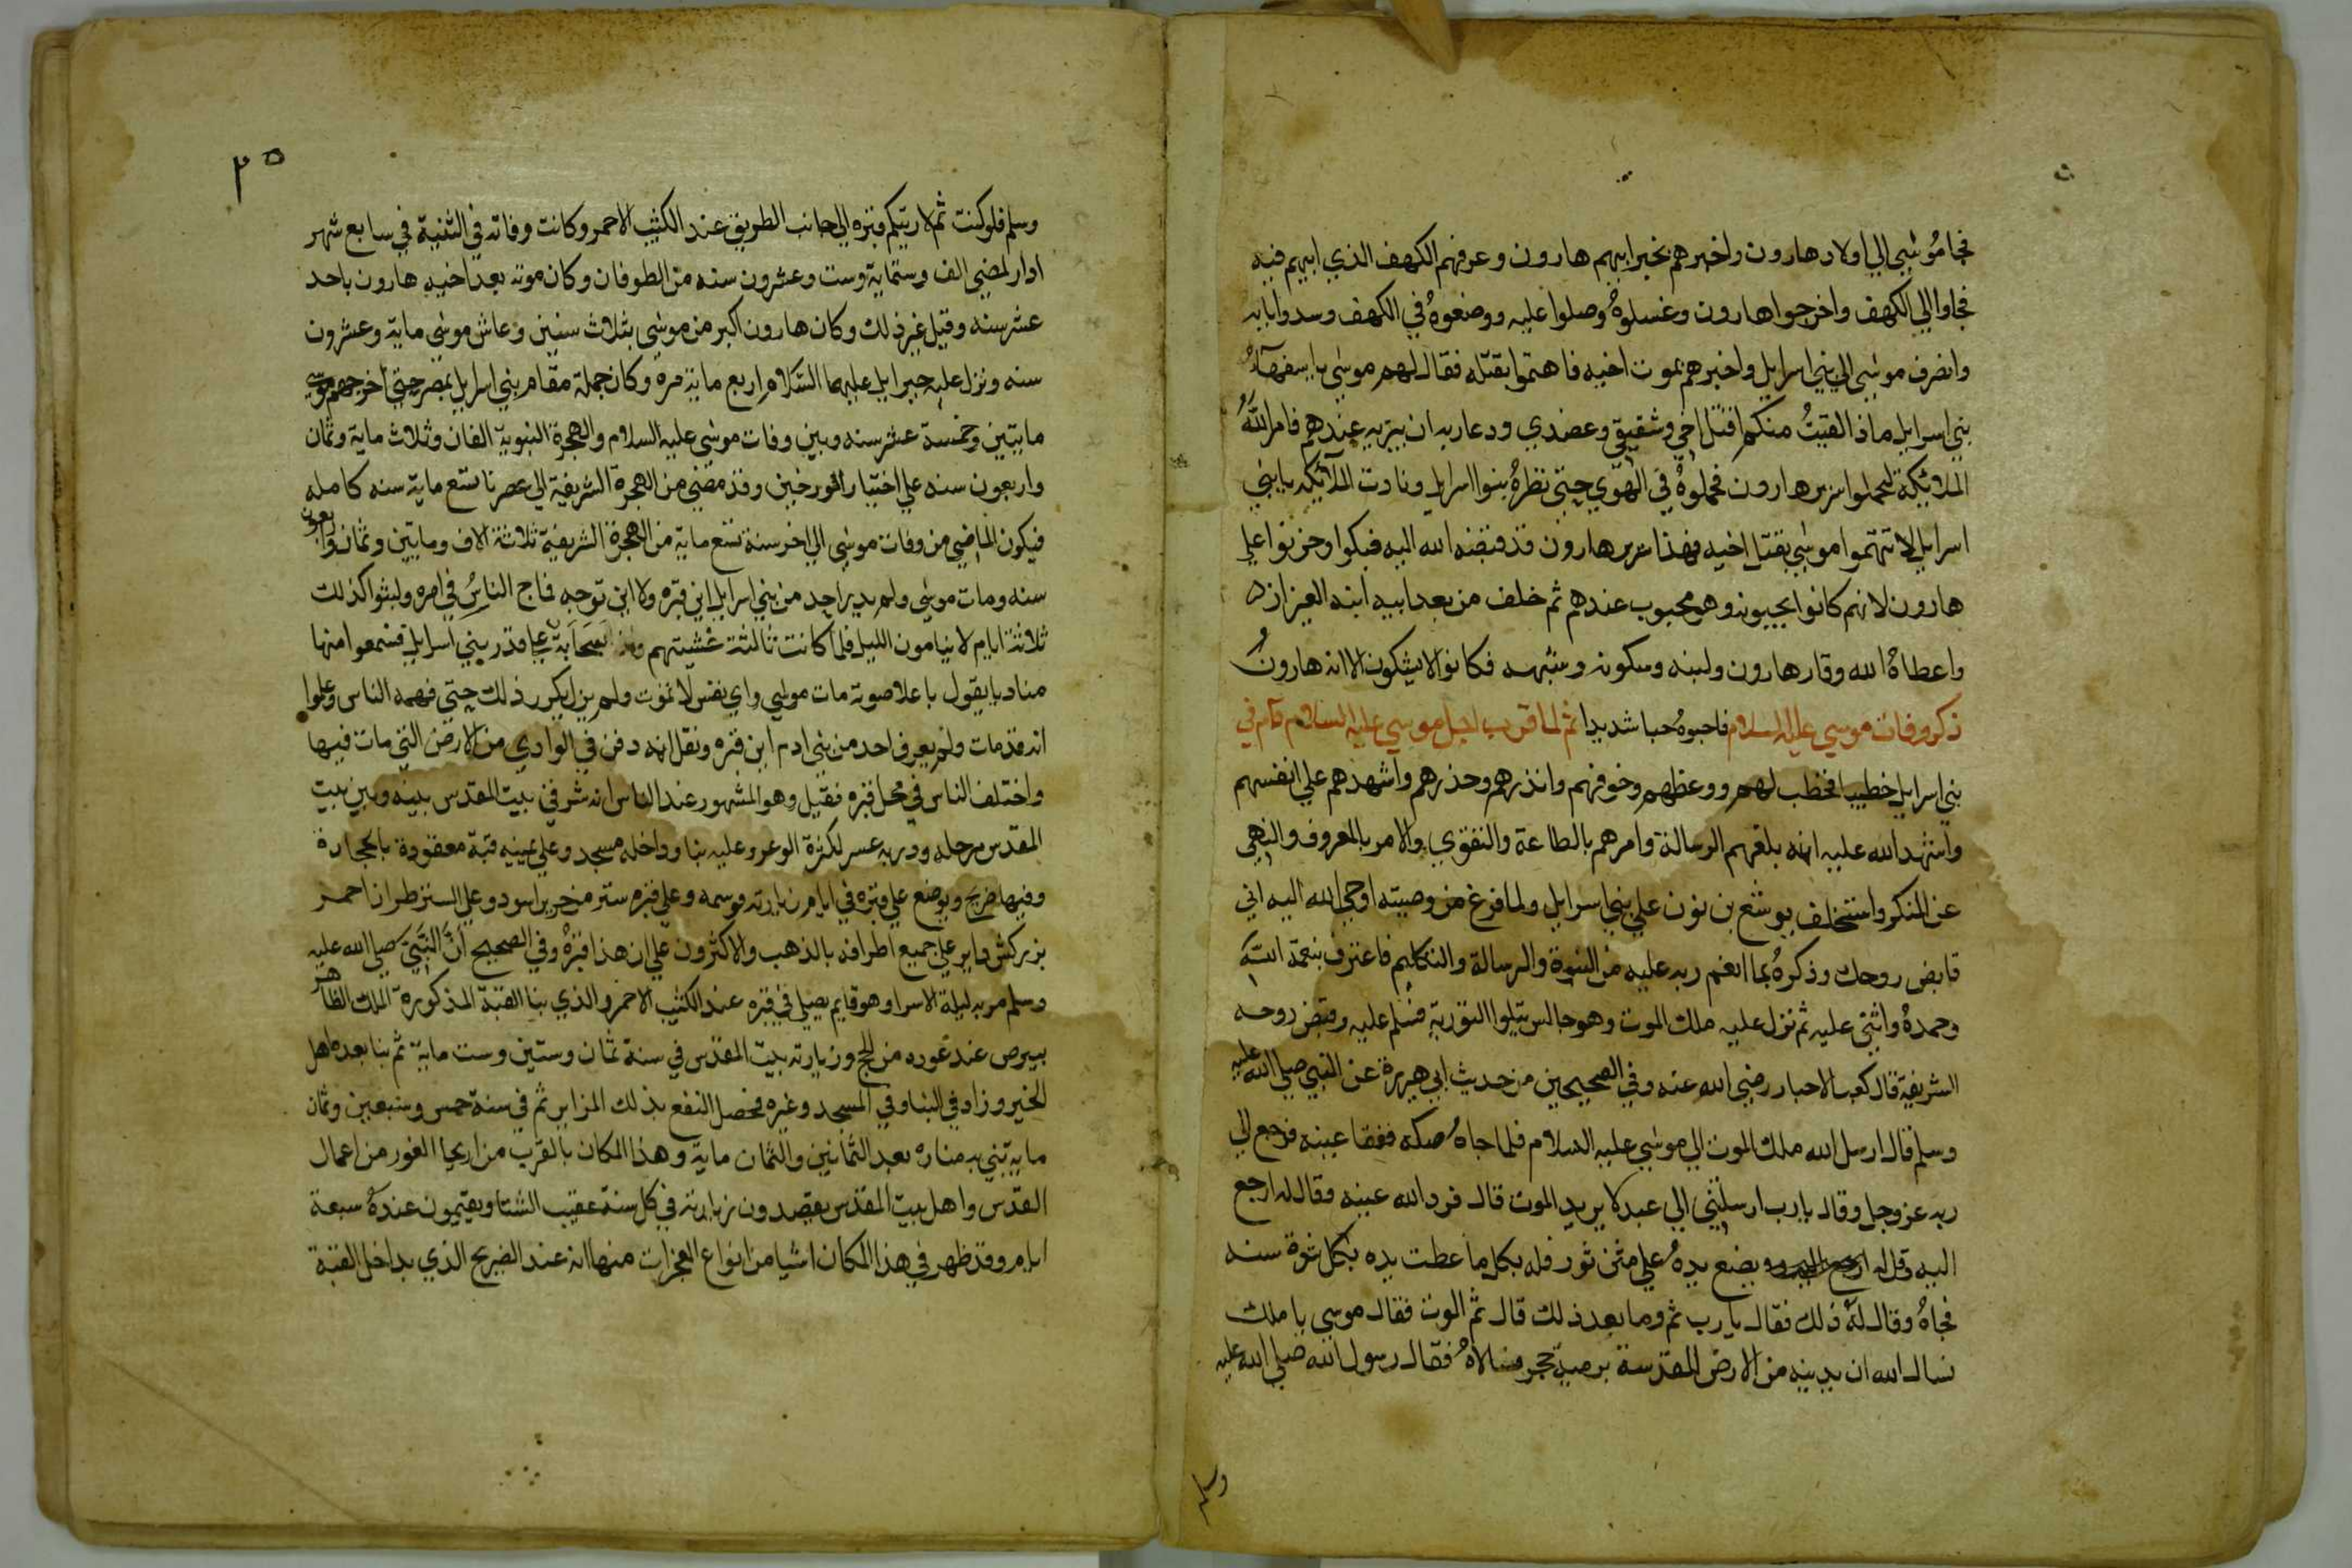 فجا موسي الي اولاد هارون واخبرهم بخبر ابيهم هارون وعرفهم الكهف الذي ابيهم فيه
فجاوا الي الكهف واخرجوا هارون وغسلوهُ وصلوا عليه ووضعوهُ في الكهف وسدوا بابه
وانصرف موسي الي بني اسرايل واخبرهم بموت اخيه فاهتموا بقتله فقال لهم موسي يا سفهآءُ
بني اسرايل ماذا لقيتُ منكم اقتل اخي وشقيقي وعضدي ودعا ربه ان يبريه عندهم فامر اللهُ
الملايكة ليحملوا سرير هارون فحملوهُ في الهوي حتي نظرهُ بنوا اسرايل ونادت الملايكه يا بني
اسرايل لا تتهموا موسي بقتل اخيه فهذا سرير هارون قد قبضه الله اليه فبكوا وحزنوا علي
هارون لانهم كانوا يحبونه وهو محبوب عندهم ثم خلف من بعد ابيه ابنه العيزار
واعطاهُ الله وقار هارون ولينه وسكونه وشبهه فكانوا لا يشكون الا انه هارونُ
ذكر وفات موسي عليه السلام فاحبوهُ حبا شديدا ثم لما قرب اجل موسي عليه السلام قام في
بني اسرايل خطيبا فخطب لهم ووعظهم وخوفهم وانذرهم وحذرهم واشهدهم علي انفسهم
واشهد الله عليه انه بلغهم الرسالة وامرهم بالطاعة والتقوي والامر بالمعروف والنهي
عن المنكر واستخلف يوشع بن نون علي بني اسرايل ولما فرغ من وصيته اوحي الله اليه اني
قابض روحك وذكرهُ بما انعم ربه عليه من النبوة والرسالة والتكليم فاعترف بنعمة الله
وحمدهُ واثني عليه ثم نزل عليه ملك الموت وهو جالس يتلوا التورية فسلم عليه وقبض روحه
الشريفة قال كعب الاحبار رضي الله عنه وفي الصحيحين من حديث ابي هريرة عن النبي صلي الله عليه
وسلم قال ارسل الله ملك الموت الي موسي عليه السلام فلما جاهُ صكه ففقا عينه فرجع الي
ربه عز وجل وقال يا رب ارسلتني الي عبد لا يريد الموت قال فرد الله عينه وقال له ارجع
اليه وقل له يضع يدهُ علي متن ثور فله بكل ما غطت يده بكل شعرة سنه
فجاهُ وقال لهُ ذلك فقال يا رب ثم وما بعد ذلك قال ثم الموت فقال موسي يا ملك
نسال الله ان يدنيه من الارض المقدسة برمية حجر فقال رسول الله صلي الله عليه
وسلم
٢٥
وسلم فلو كنت ثم لاريتكم قبره الي جانب الطريق عند الكثيب الاحمر وكانت وفاته في التنية في سابع شهر
ادار لمضي الف وستماية وست وعشرون سنه من الطوفان وكان موته بعد اخيه هارون باحد
عشر سنه وقيل غير ذلك وكان هارون اكبر من موسي بثلاث سنين وعاش موسي ماية وعشرون
سنه ونزل عليه جبرايل عليهما السلام اربع ماية مره وكان جملة مقام بني اسرايل بمصر حتي اخرجهم موسي
مايتين وخمسة عشر سنه وبين وفات موسي عليه السلام والهجرة النبوية الفان وثلاث ماية وثمان
واربعون سنه علي اختيار المورخين وقد مضي من الهجرة الشريفة الي عصرنا تسع ماية سنه كامله
فيكون الماضي من وفات موسي الي اخر سنة تسع ماية من الهجرة الشريفة ثلاثة الاف ومايتين وثمان واربعون
سنه ومات موسي ولم يدر احد من بني اسرايل اين قبره ولا اين توجه فماج الناسُ في امره ولبثوا كذلك
ثلاثة ايام لا ينامون الليل فلما كانت ثالثة غشيتهم سحابة علي قدر بني اسرايل فسمعوا منها
مناديا يقول باعلا صوته مات موسي واي نفس لا تموت ولم يزل يكرر ذلك حتي فهمه الناس وعلموا
انه قد مات ولم يعرف احد من بني ادم اين قبره ونقل انه دفن في الوادي من الارض التي مات فيها
واختلف الناس في محل قبره فقيل وهو المشهور عند الناس انه شرقي بيت المقدس بينه وبين بيت
المقدس مرحله ودربه عسر لكثرة الوعر وعليه بنا وداخله مسجد وعلي يمينه قبة معقودة بالحجارة
وفيها ضريح ويوضع علي قبره في ايام زيارته وموسمه وعلي قبره ستر من حرير اسود وعلي الستر طراز احمر
بزركش داير علي جميع اطرافه بالذهب والاكثرون علي ان هذا قبرهُ وفي الصحيح أنَّ النَّبيَّ صلي الله عليه
وسلم مر به ليلة الاسرا وهو قايم يصلي في قبره عند الكثيب الاحمر والذي بنا القبة المذكورة الملك الظاهر
بيبرص عند عوده من الحج وزيارته بيت المقدس في سنة ثمان وستين وست ماية ثم بنا بعده اهل
الخير وزاد في البنا وفي المسجد وغيره فحصل النفع بذلك المزاير ثم في سنة خمس وسبعين وثمان
ماية بني به مناره بعد الثمانين والثمان ماية وهذا المكان بالقرب من اريحا الغور من اعمال
القدس واهل بيت المقدس يقصدون زيارته في كل سنة عقيب الشتا ويقيمون عندهُ سبعة
ايام وقد ظهر في هذا المكان اشيا من انواع المعجزات منها انه عند الضريح الذي بداخل القبة